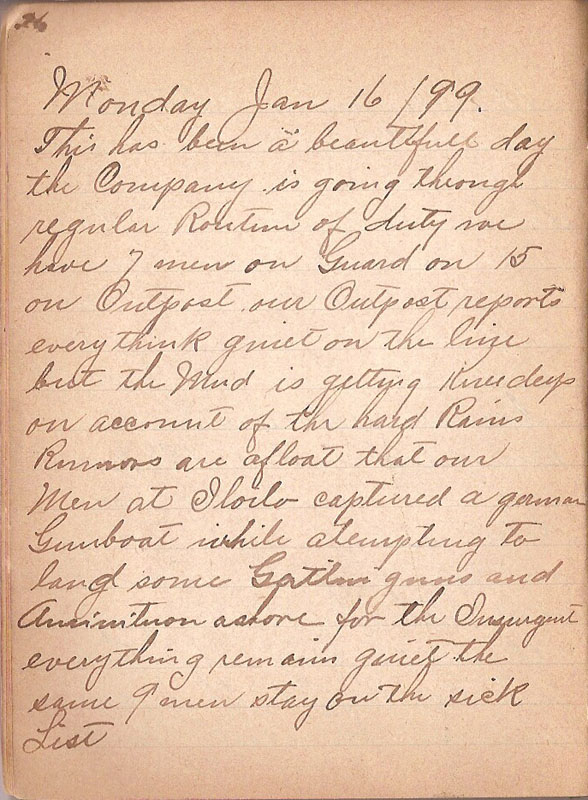 26
Monday Jan 16 /99.
This has been a beautifull day
the Company is going through
regular Routine of duty we
have 7 men on Guard on 15
on Outpost our Outpost reports
everythink quiet on the line
but the Mud is getting Kneedeep
on account of the hard Rains
Rumors are afloat that our
Men at Iloilo captured a german
Gunboat while atempting to
land some Gatlin guns and
Amunition ashore for the Insurgent
everything remain quiet the
same 9 men stay on the sick
List